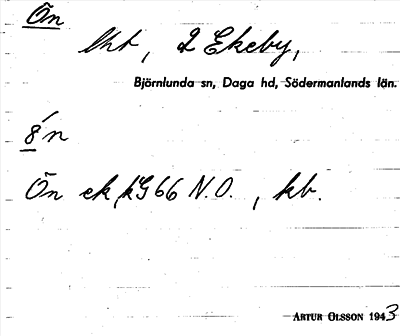 Ön
lht, 2 Ekeby,
Björnlunda sn, Daga hd, Södermanlands län.
8́n
Ön ek kG 66 N.O., kb.
ARTUR OLSSON 1943